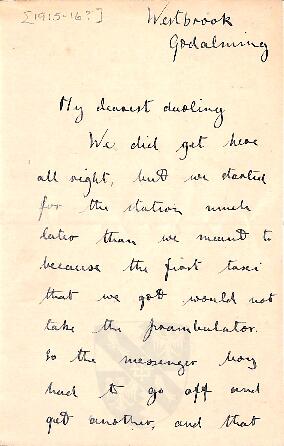 [1915-16?]
Westbrook
Godalming
My dearest darling
We did get here
all right, but we started
for the station much
later than we meant to
because the first taxi
that we got would not
take the perambulator.
So the messenger boy
had to go off and
get another, and that